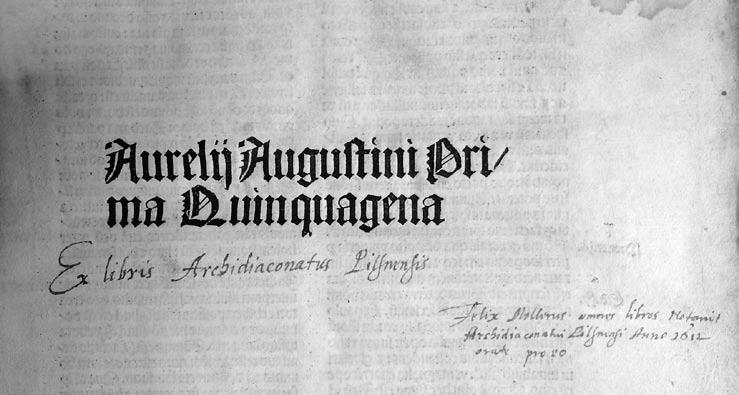 Aurelij Augustini Pri/
ma Quinquagena
Ex libris Archidiaconatus Pilsnensis
Felix Mollerus omnes libros Notavit
Archidiaconatui Pilsnensi Anno 1612
orate pro eo